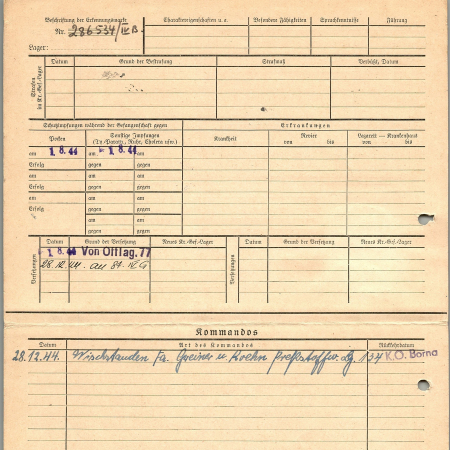 Beschriftung der Erkennungsmarke
Nr. 286534/IV B.
Lager:
Charaktereigenschaften u. a.
Besondere Fähigkeiten
Sprachkenntnisse
Führung
Strafen im Kr.-Gef.-Lager
Datum
Grund der Bestrafung
Strafmaß
Verbüßt, Datum
Schutzimpfungen während der Gefangenschaft gegen
Erkrankungen
Pocken
Sonstige Impfungen
(Ty.-Paraty., Ruhr, Cholera usw.)
Krankheit
Revier
von bis
Lazarett — Krankenhaus
von bis
am 1. 8. 44 am 1. 8. 44 am
Erfolg gegen gegen
am am am
Erfolg gegen gegen
am am am
Erfolg gegen gegen
am am
gegen gegen
Versetzungen
Datum
Grund der Versetzung
Neues Kr.-Gef.-Lager
Versetzungen
Datum
Grund der Versetzung
Neues Kr.-Gef.-Lager
1. 8. 44 Von Offlag. 77
28.12.44. an
Kommandos
Datum
Art des Kommandos
Rückkehrdatum
28.12.44. Fa. Greiner u. 134 K.O. Borna